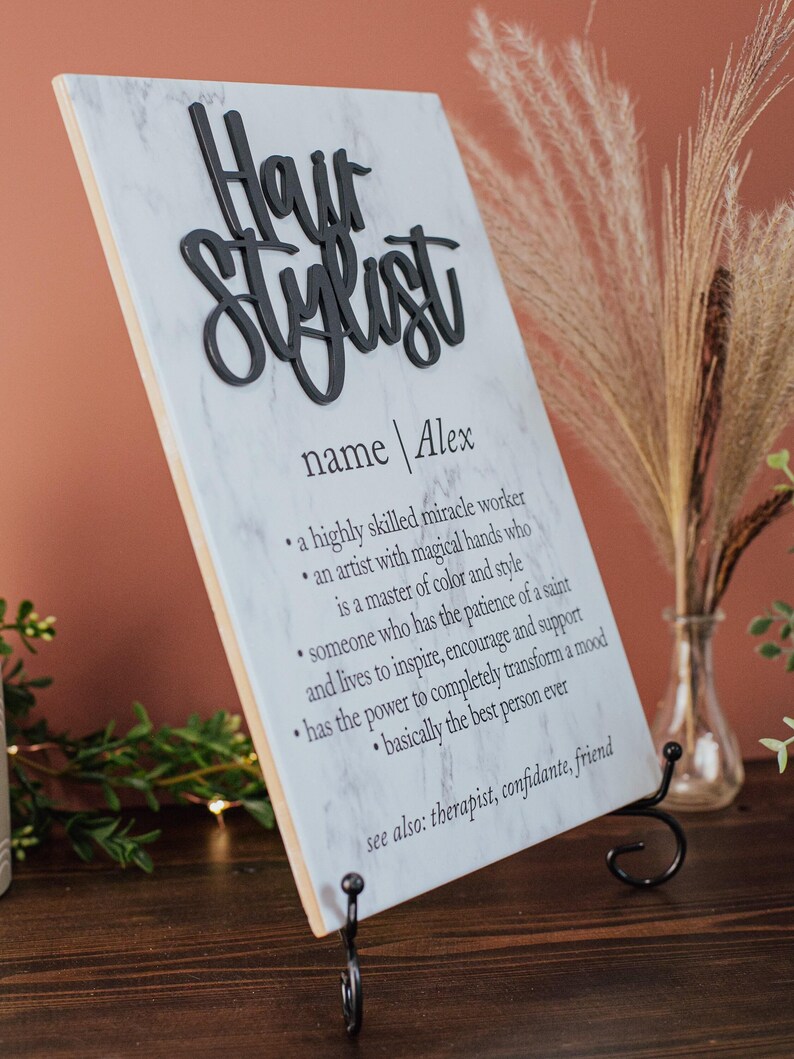 Hair
Stylist
name | Alex
• a highly skilled miracle worker
• an artist with magical hands who
is a master of color and style
• someone who has the patience of a saint
and lives to inspire, encourage and support
• has the power to completely transform a mood
• basically the best person ever
see also: therapist, confidante, friend